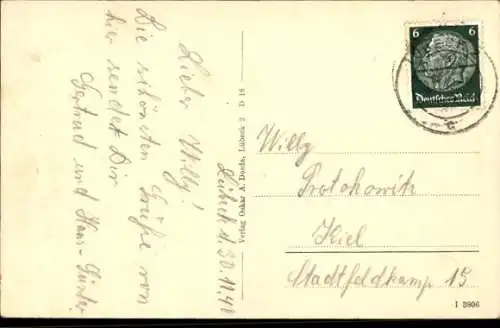 Lübeck d. 30.11.40
Lieber Willy!
Die schönsten Grüße von
hier sendet Dir
Gertrud und Hans-Günter
Verlag Oskar A. Dands, Lübeck 2 D 18
6 6
Deutsches Reich
Willy
Protokowitz
Kiel
Stadtfeldkamp 15
I 3806